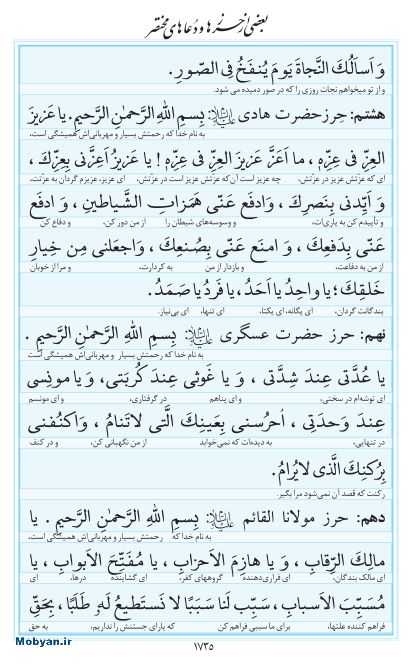 بعضی از حرزها و دعاهای مختصر
وَ اَسأَلُكَ النَّجاةَ يَومَ يُنفَخُ فِى الصّورِ.
و از تو میخواهم نجات روزی را که در صور دمیده می شود.
هشتم: حرز حضرت هادی علیه‌السلام: بِسمِ اللهِ الرَّحمٰنِ الرَّحيمِ. يا عَزيزَ
به نام خدا که رحمتش بسیار و مهربانی‌اش همیشگی است،
العِزِّ فى عِزِّهِ، ما اَعَزَّ عَزيزَ العِزِّ فى عِزِّهِ! يا عَزيزُ اَعِزَّنى بِعِزِّكَ،
ای که عزّتش عزیز در عزّتش، چه عزیز است آن‌که عزتش عزیز است در عزتش، ای عزیز، عزیزم گردان به عزّتت،
وَ اَيِّدنى بِنَصرِكَ، وَادفَع عَنّى هَمَزاتِ الشَّياطينِ، وَ ادفَع
و تأییدم کن به یاری‌ات، و وسوسه‌های شیطان را از من دور کن، و دفاع کن
عَنّى بِدَفعِكَ، وَ امنَع عَنّى بِصُنعِكَ، وَاجعَلنى مِن خِيارِ
از من به دفاعت، و بازدار از من به کردارت، و مرا از خوبان
خَلقِكَ؛ يا واحِدُ يا اَحَدُ، يا فَردُ يا صَمَدُ.
بندگانت گردان، ای یگانه، ای یکتا، ای تنها، ای بی‌نیاز.
نهم: حرز حضرت عسگری علیه‌السلام: بِسمِ اللهِ الرَّحمٰنِ الرَّحيمِ.
به نام خدا که رحمتش بسیار و مهربانی‌اش همیشگی است
يا عُدَّتى عِندَ شِدَّتى، وَ يا غَوثى عِندَ كُربَتى، وَ يا مونِسى
ای توشه‌ام در سختی، و ای پناهم در گرفتاری، و ای مونسم
عِندَ وَحدَتى، اُحرُسنى بِعَينِكَ الَّتى لاتَنامُ، وَاكنُفنى
در تنهایی، به دیده‌ات که نمی‌خوابد از من نگهبانی کن، و در کنف
بِرُكنِكَ الَّذى لايُرامُ.
رکنت که قصد آن نمی‌شود مرا بگیر.
دهم: حرز مولانا القائم علیه‌السلام: بِسمِ اللهِ الرَّحمٰنِ الرَّحيمِ. يا
به نام خدا که رحمتش بسیار و مهربانی‌اش همیشگی است، ای
مالِكَ الرِّقابِ، وَ يا هازِمَ الاَحزابِ، يا مُفَتِّحَ الاَبوابِ، يا
ای مالک بندگان، ای فراری‌دهنده گروههای کفر، ای گشاینده درها، ای
مُسَبِّبَ الاَسبابِ، سَبِّب لَنا سَبَبًا لا نَستَطيعُ لَهُ طَلَبًا، بِحَقِّ
فراهم کننده علتها، برای ما سببی فراهم کن که یارای جستنش را نداریم، به حق
۱۷۳۵
Mobyan.ir